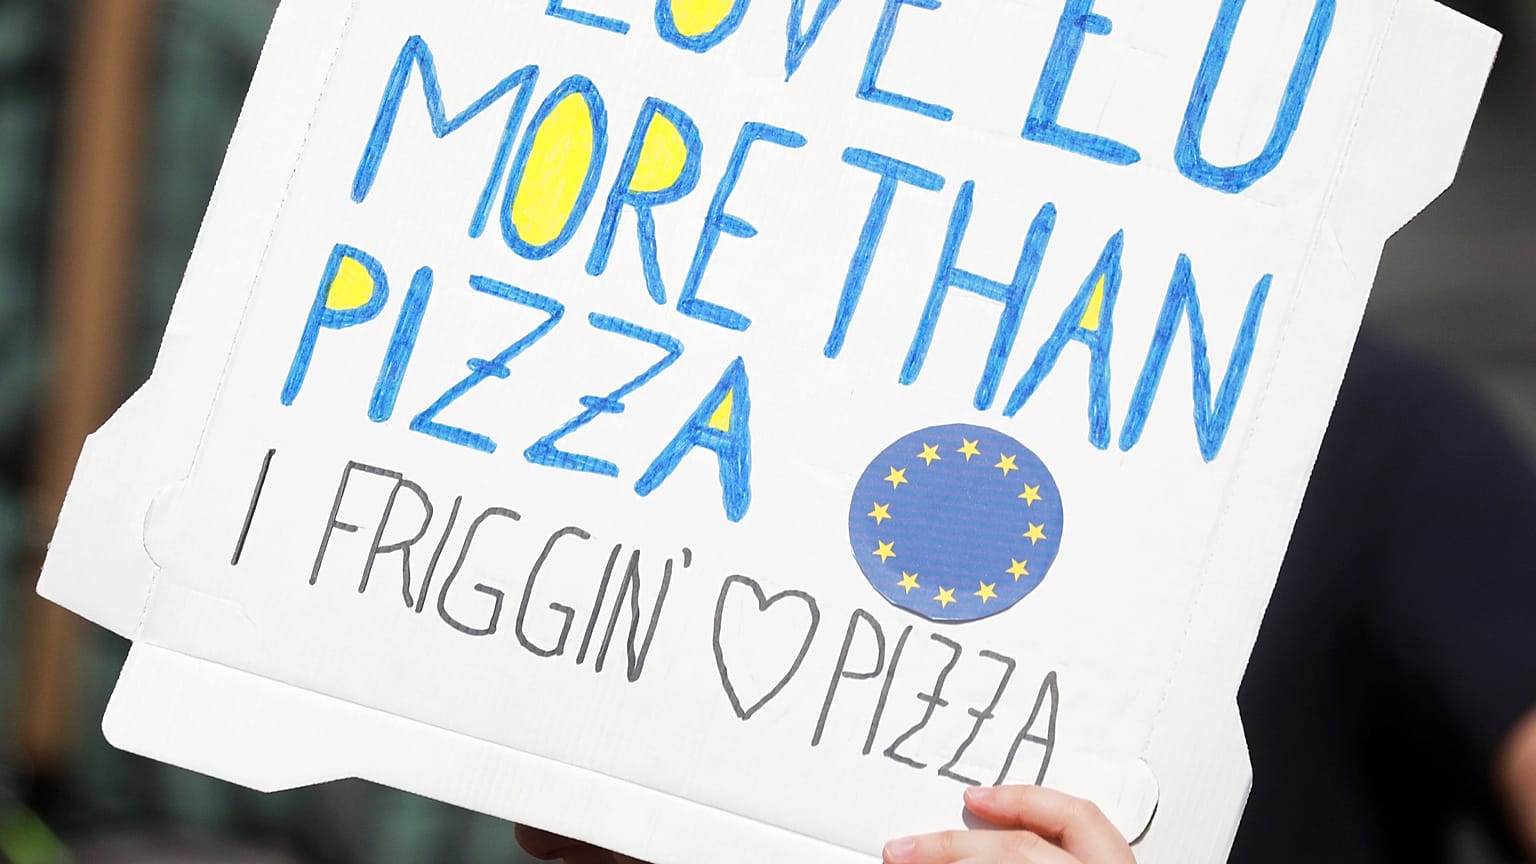 LOVE EU
MORE THAN
PIZZA
I FRIGGIN' ♡ PIZZA